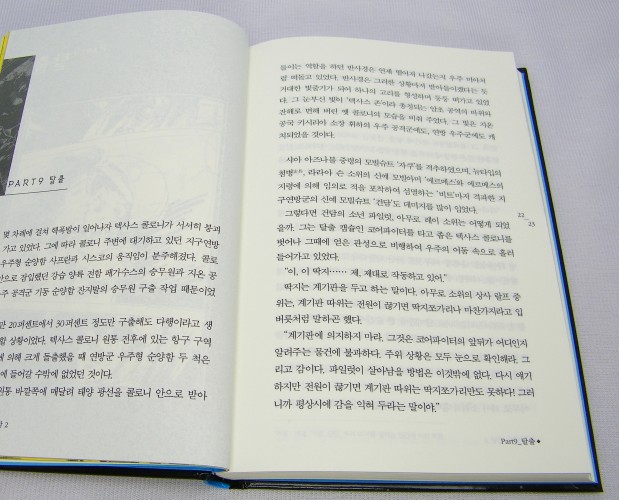 PART9 탈출
몇 차례에 걸쳐 핵폭발이 일어나자 텍사스 콜로니가 서서히 붕괴
가고 있었다. 그에 따라 콜로니 주변에 대기하고 있던 지구연방
형 순양함 사프란과 시스코의 움직임이 분주해졌다. 콜로
안으로 잠입했던 강습 양륙 전함 페가수스의 승무원과 지온 공
주 공격군 기동 순양함 잔지발의 승무원 구출 작업 때문이었
만 20퍼센트에서 30퍼센트 정도만 구출해도 다행이라고 생
할 상황이었다. 텍사스 콜로니 원통 전후에 있는 항구 구역
에 의해 크게 돌출했을 때 연방군 우주형 순양함 두 척은
에 들어갈 수밖에 없었던 것이다.
원통 바깥쪽에 매달려 태양 광선을 콜로니 안으로 받아
담 2
들이는 역할을 하던 반사경은 언제 떨어져 나갔는지 우주 미아처
럼 떠돌고 있었다. 반사경은 그러한 상황마저 받아들이겠다는 듯
거대한 빛줄기가 되어 하나의 고리를 형성하며 둥둥 떠가고 있었
다. 그 눈부신 빛이 '텍사스 존'이라 총칭되는 암초 공역의 바위와
잔해로 변해 버린 옛 콜로니의 모습을 비춰 주었다. 그 빛은 지온
공국 키시리아 소장 휘하의 우주 공격군에도, 연방 우주군에도 캐
치되었을 것이다.
샤아 아즈나블 중령의 모빌슈트 '자쿠'를 격추하였으며, 뉴타입의
원병, 라라아 슨 소위의 신예 모빌아머 '엘르메스'와 엘르메스의
지령에 의해 임의로 적을 포착하여 섬멸하는 '비트'마저 격파한 지
구연방군의 신예 모빌슈트 '건담'도 데미지를 많이 입었다.
그렇다면 건담의 소년 파일럿, 아무로 레이 소위는 어떻게 되었
을까. 그는 탈출 캡슐인 코어파이터를 타고 좁은 텍사스 콜로니를
벗어나 그때에 얻은 관성으로 비행하여 우주의 어둠 속으로 흘러
들어가고 있었다.
"이, 이 딱지…… 제, 제대로 작동하고 있어."
딱지는 계기판을 두고 하는 말이다. 아무로 소위의 상사 랄프 중
위는, 계기판 따위는 전원이 끊기면 딱지쪼가리나 마찬가지라고 입
버릇처럼 말하곤 했다.
"계기판에 의지하지 마라. 그것은 코어파이터의 앞뒤가 어디인지
알려주는 물건에 불과하다. 주위 상황은 모두 눈으로 확인해라. 그
리고 감이다. 파일럿이 살아남을 방법은 이것밖에 없다. 다시 얘기
하지만 전원이 끊기면 계기판 따위는 딱지쪼가리만도 못하다! 그러
니까 평상시에 감을 익혀 두라는 말이야."
22
23
Part9_탈출 ◆